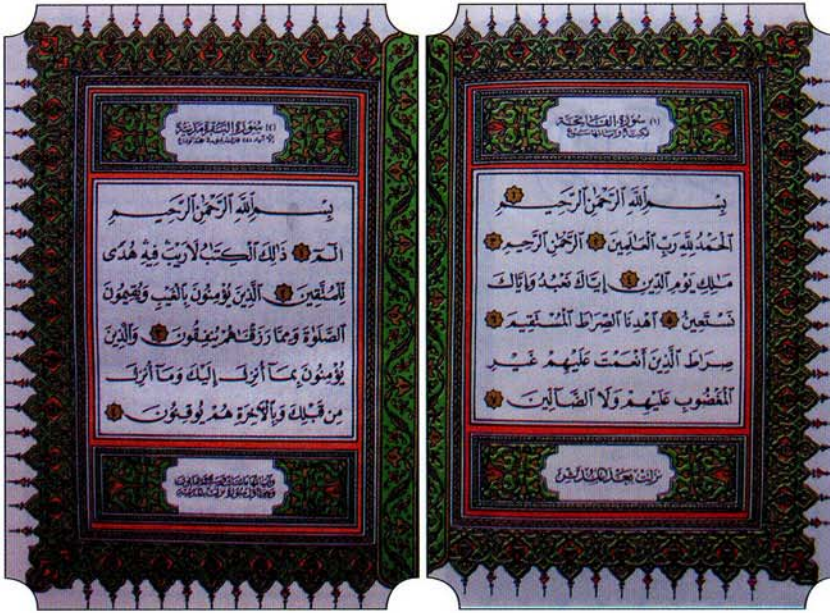 (١) سُورَةُ الفَاتِحَة
مكيّة وآياتها سبع
بِسْمِ ٱللَّهِ ٱلرَّحْمَٰنِ ٱلرَّحِيمِ ١
ٱلْحَمْدُ لِلَّهِ رَبِّ ٱلْعَٰلَمِينَ ٢ ٱلرَّحْمَٰنِ ٱلرَّحِيمِ ٣
مَٰلِكِ يَوْمِ ٱلدِّينِ ٤ إِيَّاكَ نَعْبُدُ وَإِيَّاكَ
نَسْتَعِينُ ٥ ٱهْدِنَا ٱلصِّرَٰطَ ٱلْمُسْتَقِيمَ ٦
صِرَٰطَ ٱلَّذِينَ أَنْعَمْتَ عَلَيْهِمْ غَيْرِ
ٱلْمَغْضُوبِ عَلَيْهِمْ وَلَا ٱلضَّآلِّينَ ٧
نزلت بعد المدثر
(٢) سُورَةُ البَقَرَةِ مَدَنِيَّة
بِسْمِ ٱللَّهِ ٱلرَّحْمَٰنِ ٱلرَّحِيمِ
الٓمٓ ١ ذَٰلِكَ ٱلْكِتَٰبُ لَا رَيْبَ فِيهِ هُدًى
لِّلْمُتَّقِينَ ٢ ٱلَّذِينَ يُؤْمِنُونَ بِٱلْغَيْبِ وَيُقِيمُونَ
ٱلصَّلَوٰةَ وَمِمَّا رَزَقْنَٰهُمْ يُنفِقُونَ ٣ وَٱلَّذِينَ
يُؤْمِنُونَ بِمَآ أُنزِلَ إِلَيْكَ وَمَآ أُنزِلَ
مِن قَبْلِكَ وَبِٱلْءَاخِرَةِ هُمْ يُوقِنُونَ ٤